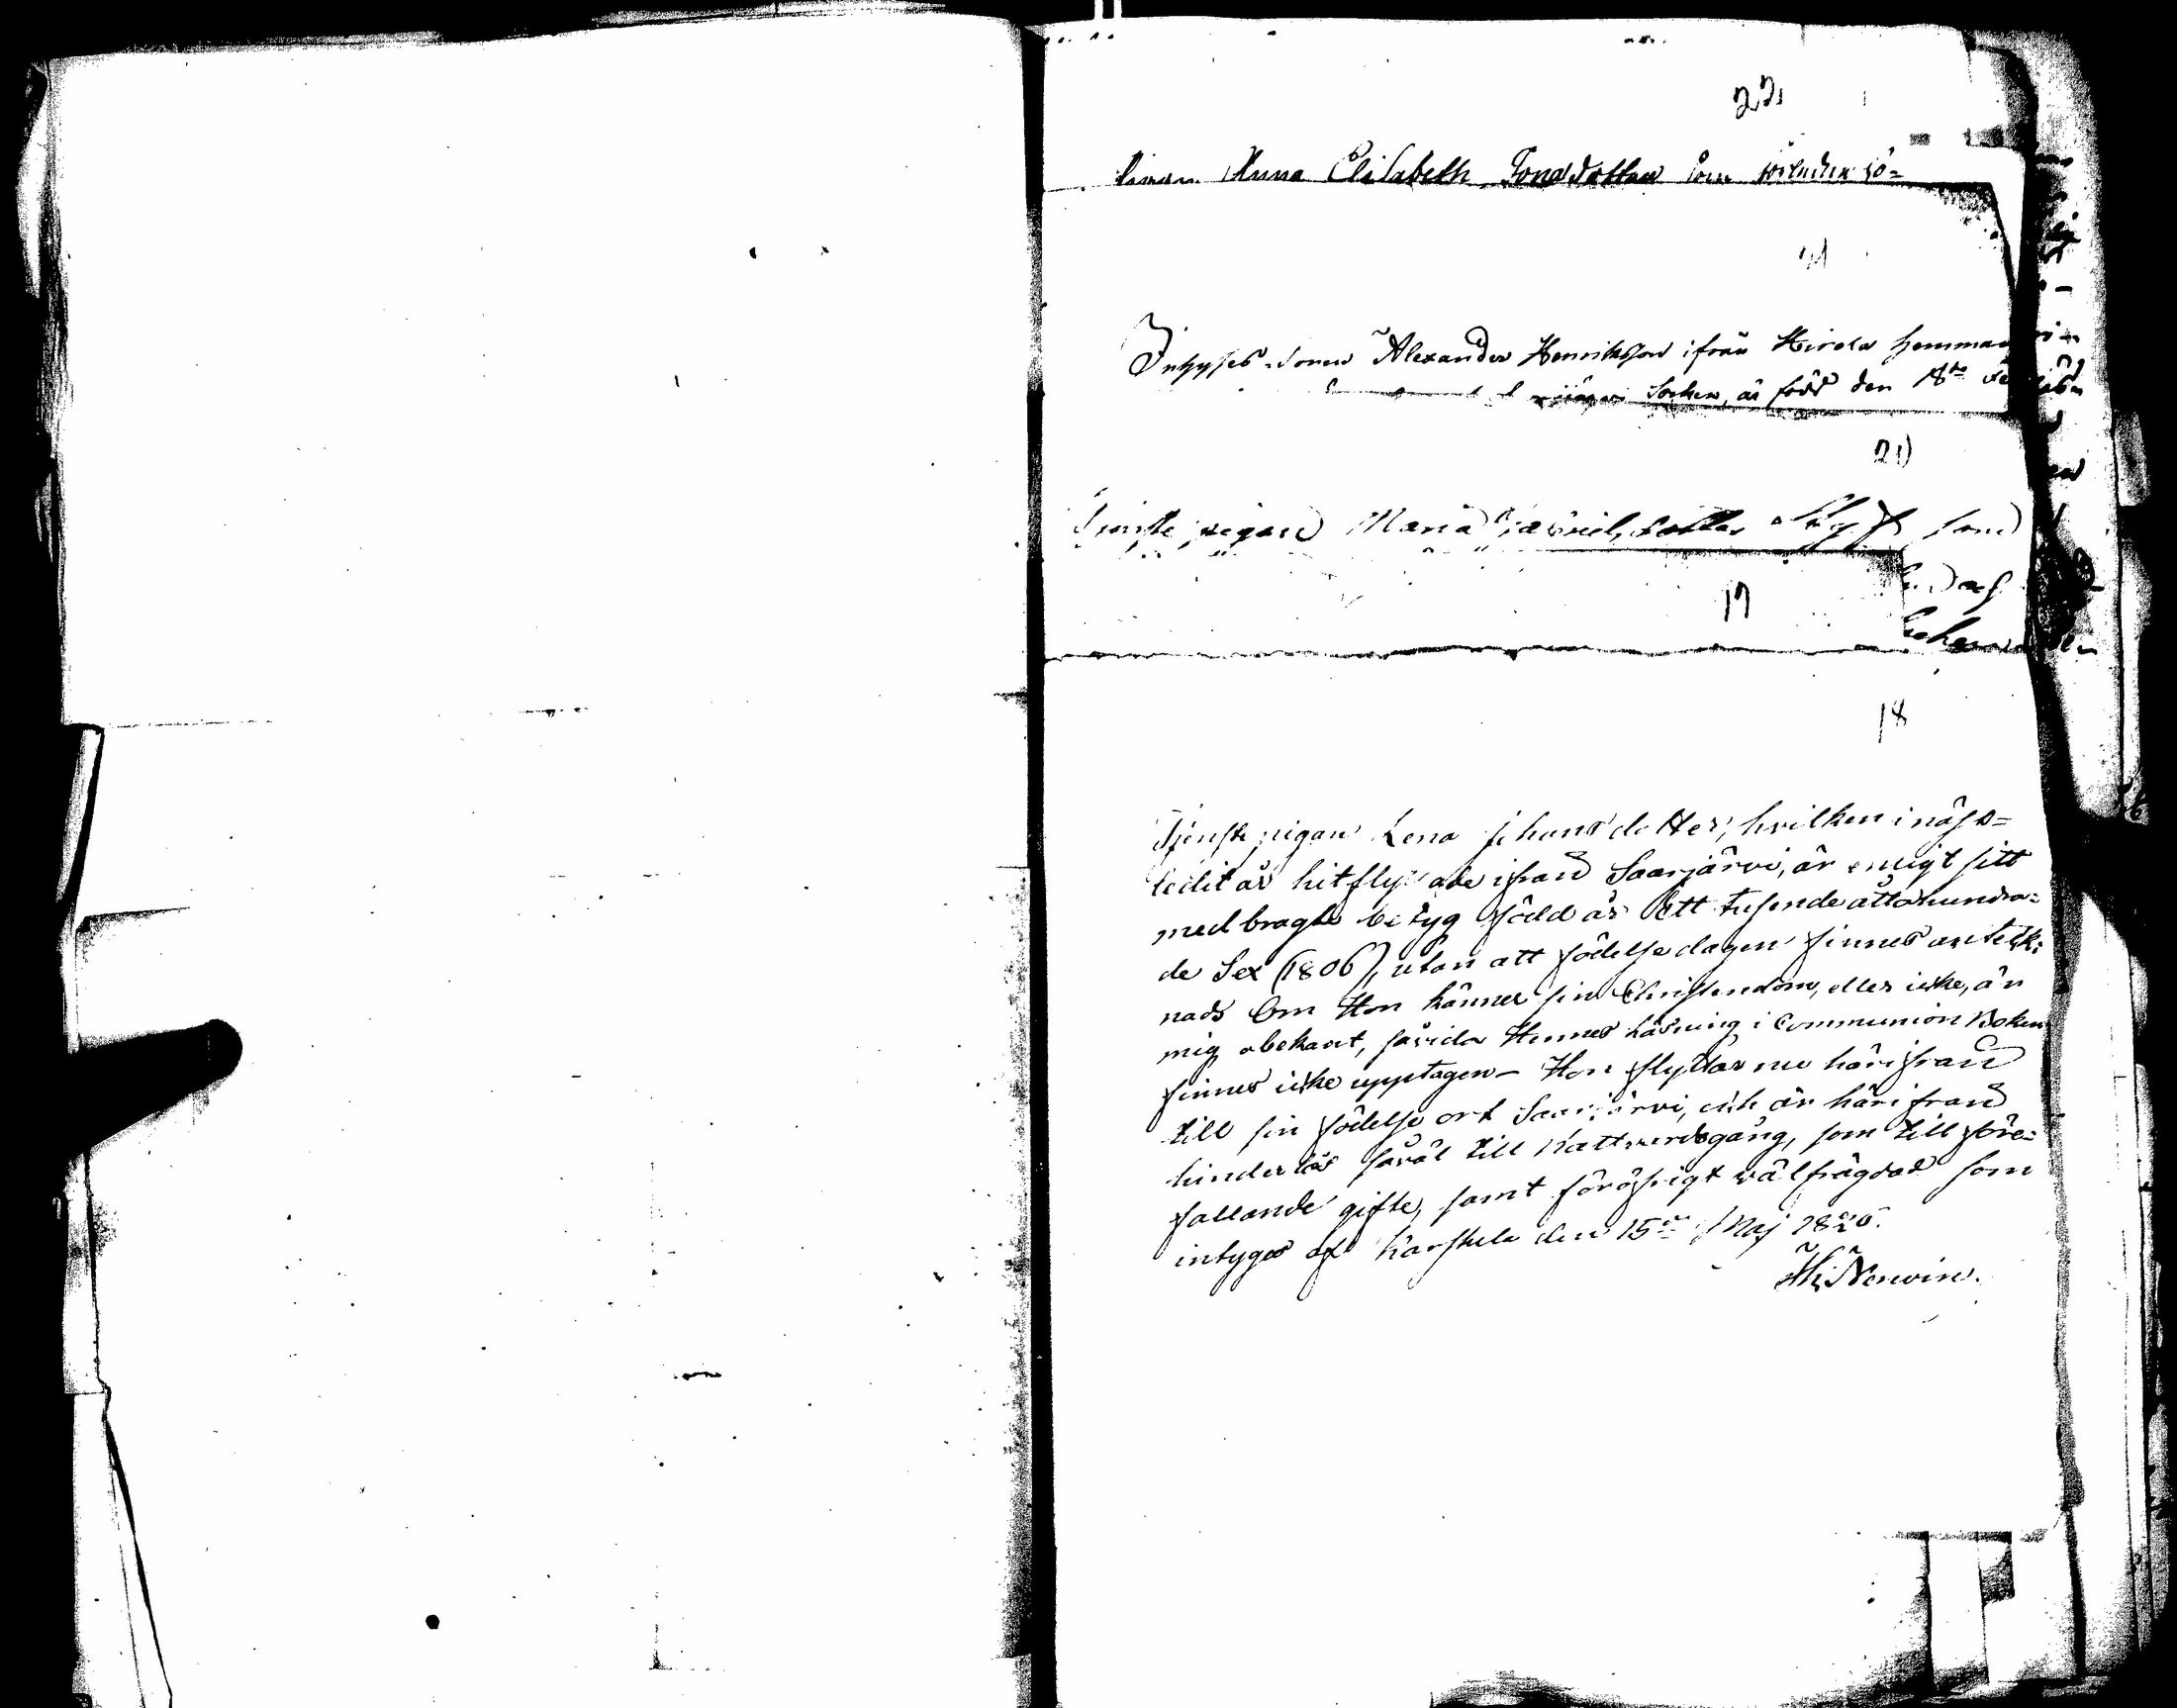 22
Anna Elisabeth Jonsdotter som
21
Inhyses Sonen Alexander Henriksson ifrån Hirola hemman
Socken, är född den 18de
21)
Tjenste pigan Maria som
17
18
Tjenste pigan Lena Johansdotter, hvilken i näst=
ledit år hitflyttade ifrån Saarjärvi, är enligt sitt
medbragte betyg född år Ett tusende åttahundra=
de Sex (1806), utan att födelse dagen finnes anteck=
nad. Om Hon känner sin Christendom, eller icke, är
mig obekant, såvida Hennes läsning i Communion Boken
finnes icke upptagen – Hon flyttar nu härifrån
till sin födelse ort Saarjärvi, och är härifrån
hinderlös såväl till Nattvardsgång, som till före=
fallande gifte, samt för öfrigt välfrägdad som
intygas af Karstula den 15de Maj 1826.